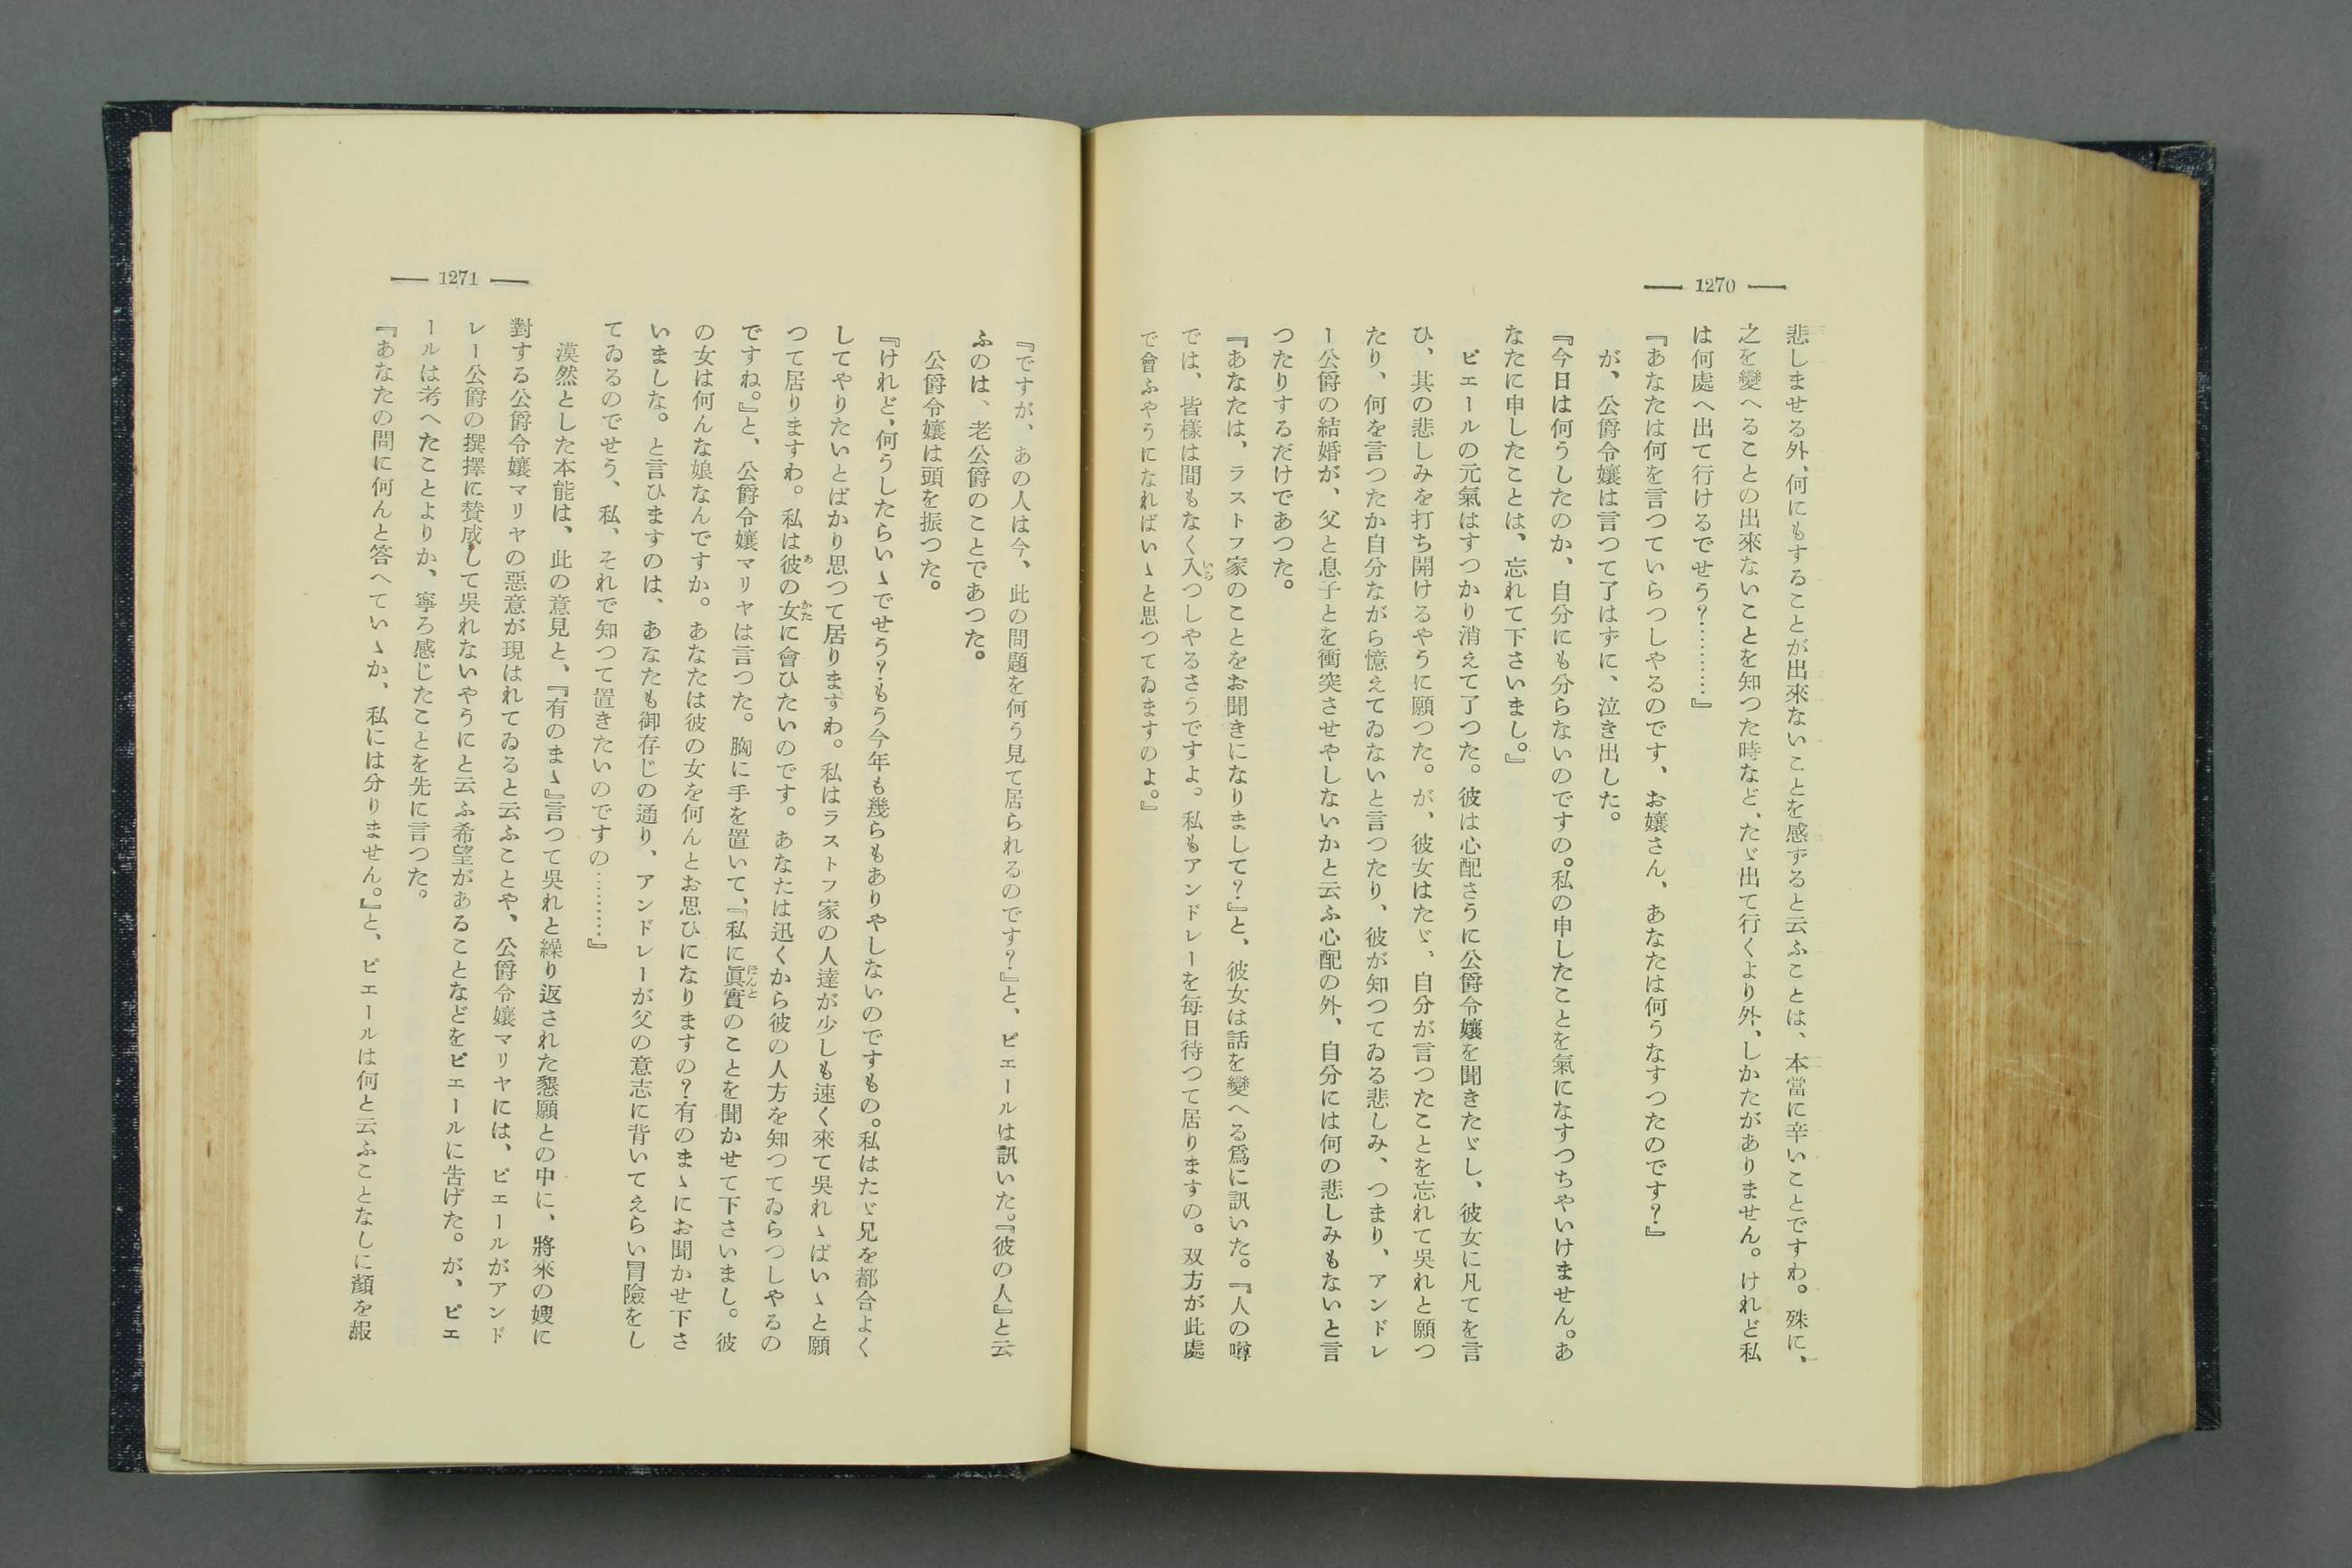 1270
悲しませる外、何にもすることが出來ないことを感ずると云ふことは、本當に辛いことですわ。殊に、
之を變へることの出來ないことを知つた時など、たゞ出て行くより外、しかたがありません。けれど私
は何處へ出て行けるでせう？…………』
『あなたは何を言つていらつしやるのです、お孃さん、あなたは何うなすつたのです？』
が、公爵令孃は言つて了はずに、泣き出した。
『今日は何うしたのか、自分にも分らないのですの。私の申したことを氣になすつちやいけません。あ
なたに申したことは、忘れて下さいまし。』
ピエールの元氣はすつかり消えて了つた。彼は心配さうに公爵令孃を聞きたゞし、彼女に凡てを言
ひ、其の悲しみを打ち開けるやうに願つた。が、彼女はたゞ、自分が言つたことを忘れて吳れと願つ
たり、何を言つたか自分ながら憶えてゐないと言つたり、彼が知つてゐる悲しみ、つまり、アンドレ
ー公爵の結婚が、父と息子とを衝突させやしないかと云ふ心配の外、自分には何の悲しみもないと言
つたりするだけであつた。
『あなたは、ラストフ家のことをお聞きになりまして？』と、彼女は話を變へる爲に訊いた。『人の噂
では、皆樣は間もなく入つしやるさうですよ。私もアンドレーを每日待つて居りますの。双方が此處
で會ふやうになればいゝと思つてゐますのよ。』
1271
『ですが、あの人は今、此の問題を何う見て居られるのです？』と、ピエールは訊いた。『彼の人』と云
ふのは、老公爵のことであつた。
公爵令孃は頭を振つた。
『けれど、何うしたらいゝでせう？もう今年も幾らもありやしないのですもの。私はたゞ兄を都合よく
してやりたいとばかり思つて居りますわ。私はラストフ家の人達が少しも速く來て吳れゝばいゝと願
つて居りますわ。私は彼の女に會ひたいのです。あなたは迅くから彼の人方を知つてゐらつしやるの
ですね。』と、公爵令孃マリヤは言つた。胸に手を置いて、『私に眞實のことを聞かせて下さいまし。彼
の女は何んな娘なんですか。あなたは彼の女を何んとお思ひになりますの？有のまゝにお聞かせ下さ
いましな。と言ひますのは、あなたも御存じの通り、アンドレーが父の意志に背いてえらい冒險をし
てゐるのでせう、私、それで知つて置きたいのですの…………』
漠然とした本能は、此の意見と、『有のまゝ』言つて吳れと繰り返された懇願との中に、將來の嫂に
對する公爵令孃マリヤの惡意が現はれてゐると云ふことや、公爵令孃マリヤには、ピエールがアンド
レー公爵の撰擇に贊成して吳れないやうにと云ふ希望があることなどをピエールに告げた。が、ピエ
ールは考へたことよりか、寧ろ感じたことを先に言つた。
『あなたの問に何んと答へていゝか、私には分りません。』と、ピエールは何と云ふことなしに顏を赧